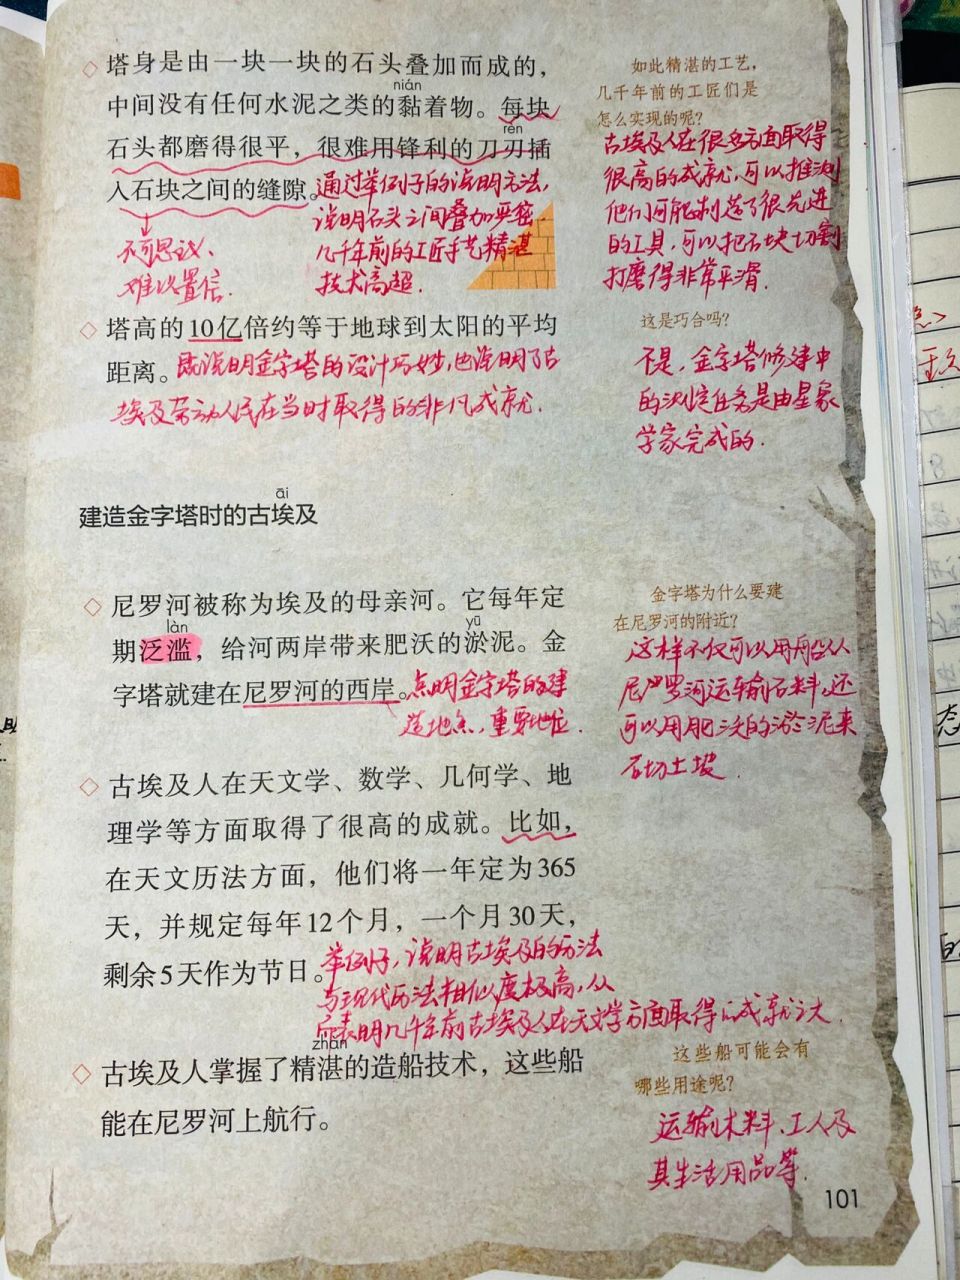 塔身是由一块一块的石头叠加而成的，
nián
中间没有任何水泥之类的黏着物。每块
rèn
石头都磨得很平，很难用锋利的刀刃插
入石块之间的缝隙。
通过举例子的说明方法，
说明石头之间叠加严密，
几千年前的工匠手艺精湛
技术高超.
不可思议、
难以置信.
如此精湛的工艺，
几千年前的工匠们是
怎么实现的呢？
古埃及人在很多方面取得
很高的成就，可以推测
他们可能制造了很先进
的工具，可以把石块切割
打磨得非常平滑.
塔高的10亿倍约等于地球到太阳的平均
距离。
既说明金字塔的设计巧妙，也说明了古
埃及劳动人民在当时取得的非凡成就.
这是巧合吗？
不是，金字塔修建中
的测定任务是由星象
学家完成的.
āi
建造金字塔时的古埃及
尼罗河被称为埃及的母亲河。它每年定
làn
yū
期泛滥，给河两岸带来肥沃的淤泥。金
字塔就建在尼罗河的西岸。
点明金字塔的建
造地点，重要地位.
金字塔为什么要建
在尼罗河的附近？
这样不仅可以用船从
尼罗河运输石料，还
可以用肥沃的淤泥来
土坡.
古埃及人在天文学、数学、几何学、地
理学等方面取得了很高的成就。比如，
在天文历法方面，他们将一年定为365
天，并规定每年12个月，一个月30天，
剩余5天作为节日。
举例子，说明古埃及的历法
与现代历法相似度极高，从
表明几千年前古埃及人在天文学方面取得的成就之大.
zhàn
古埃及人掌握了精湛的造船技术，这些船
能在尼罗河上航行。
这些船可能会有
哪些用途呢？
运输木料、工人及
其生活用品等.
101